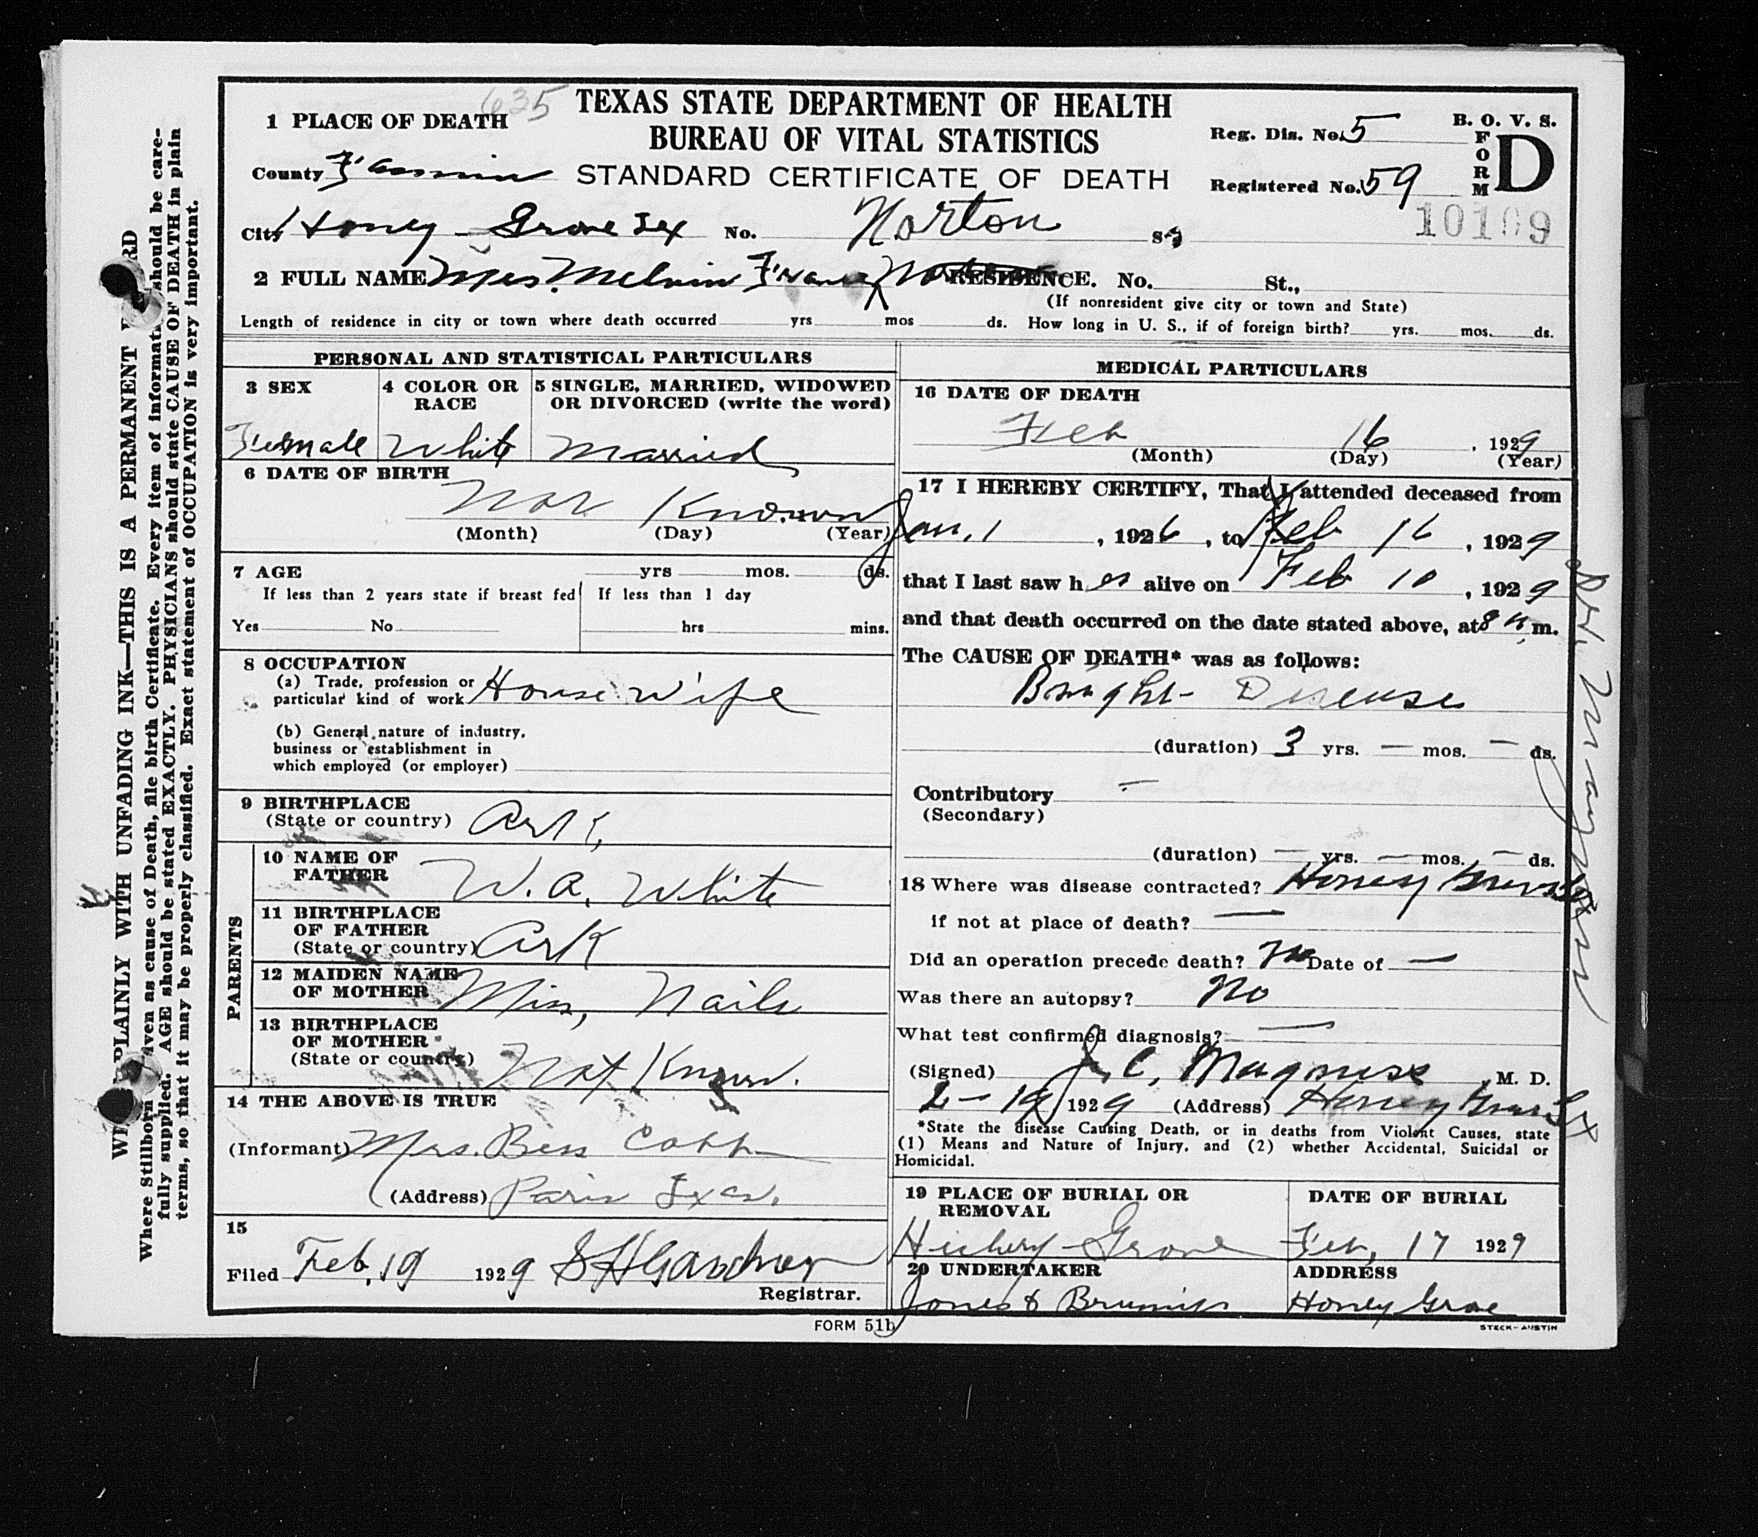 635
TEXAS STATE DEPARTMENT OF HEALTH
BUREAU OF VITAL STATISTICS
STANDARD CERTIFICATE OF DEATH
B. O. V. S.
FORM D
Reg. Dis. No. 5
Registered No. 59
10109
1 PLACE OF DEATH
County Fannin
City Honey Grove Tex No. Norton St.
2 FULL NAME Mrs. Melvin Frances Norton RESIDENCE. No. St.,
(If nonresident give city or town and State)
Length of residence in city or town where death occurred yrs mos ds. How long in U. S., if of foreign birth? yrs. mos. ds.
PERSONAL AND STATISTICAL PARTICULARS
3 SEX
Female
4 COLOR OR RACE
White
5 SINGLE, MARRIED, WIDOWED
OR DIVORCED (write the word)
Married
6 DATE OF BIRTH
Not Known
(Month) (Day) (Year)
7 AGE yrs mos. ds.
If less than 2 years state if breast fed
Yes No
If less than 1 day
hrs mins.
8 OCCUPATION
(a) Trade, profession or
particular kind of work House wife
(b) General nature of industry,
business or establishment in
which employed (or employer)
9 BIRTHPLACE
(State or country) Ark,
PARENTS
10 NAME OF
FATHER W. A. White
11 BIRTHPLACE
OF FATHER
(State or country) Ark
12 MAIDEN NAME
OF MOTHER Miss, Nails
13 BIRTHPLACE
OF MOTHER
(State or country) Not Known.
14 THE ABOVE IS TRUE
(Informant) Mrs. Bess Cobb
(Address) Paris Texas.
15
Filed Feb, 19 1929 S H Gardner
Registrar.
MEDICAL PARTICULARS
16 DATE OF DEATH
Feb 16, 1929
(Month) (Day) (Year)
17 I HEREBY CERTIFY, That I attended deceased from
Jan, 1, 1926, to Feb 16, 1929
that I last saw her alive on Feb 10, 1929
and that death occurred on the date stated above, at 8 a, m.
The CAUSE OF DEATH* was as follows:
Bright Disease
(duration) 3 yrs. — mos. — ds.
Contributory —
(Secondary)
(duration) — yrs. — mos. — ds.
18 Where was disease contracted? Honey Grove Tex
if not at place of death? —
Did an operation precede death? no Date of —
Was there an autopsy? No
What test confirmed diagnosis? —
(Signed) J. C. Magness, M. D.
2 - 19, 1929 (Address) Honey Grove Tx
*State the disease Causing Death, or in deaths from Violent Causes, state
(1) Means and Nature of Injury, and (2) whether Accidental, Suicidal or
Homicidal.
19 PLACE OF BURIAL OR
REMOVAL
Hickery Grove
DATE OF BURIAL
Feb, 17 1929
20 UNDERTAKER
Jones &
ADDRESS
Honey Grove
FORM 511
STECK-AUSTIN
Dr. Magness
PLAINLY WITH UNFADING INK—THIS IS A PERMANENT
Where Stillborn given as cause of Death, file birth Certificate. Every item of information should be care-
fully supplied. AGE should be stated EXACTLY. PHYSICIANS should state CAUSE OF DEATH in plain
terms, so that it may be properly classified. Exact statement of OCCUPATION is very important.